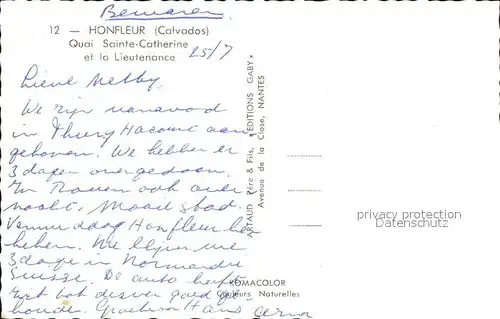 Bewaren
12 — HONFLEUR (Calvados)
Quai Sainte-Catherine
et la Lieutenance
25/7
Lieve Netty,
We zijn vanavond
in Thury Harcourt aan
gekomen. We hebben er
3 dagen over gedaan.
In Rouen ook over
nacht. Mooie stad.
Vanmiddag Honfleur be
keken. We blijven
3 dagen in Normandie
Suisse. De auto heeft
zich tot dusver goed ge
houden. Groeten Hans
ARTAUD Père & Fils, "EDITIONS GABY"
Avenue de la Close, NANTES
ROMACOLOR
Couleurs Naturelles
privacy protection
Datenschutz